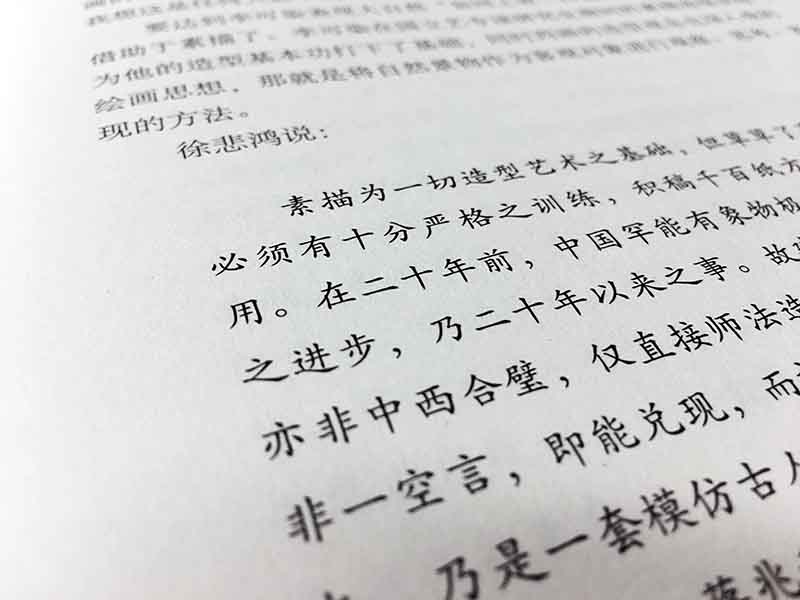 借助于素描了。李可染在国立艺专
为他的造型基本功打下了基础，同时
绘画思想，那就是将自然景物作为客观对象进行观察
现的方法。
徐悲鸿说：
素描为一切造型艺术之基础，但草草了
必须有十分严格之训练，积稿千百纸方
用。在二十年前，中国罕能有象物极
之进步，乃二十年以来之事。故
亦非中西合璧，仅直接师法造
非一空言，即能兑现，而
乃是一套模仿古人
落兆